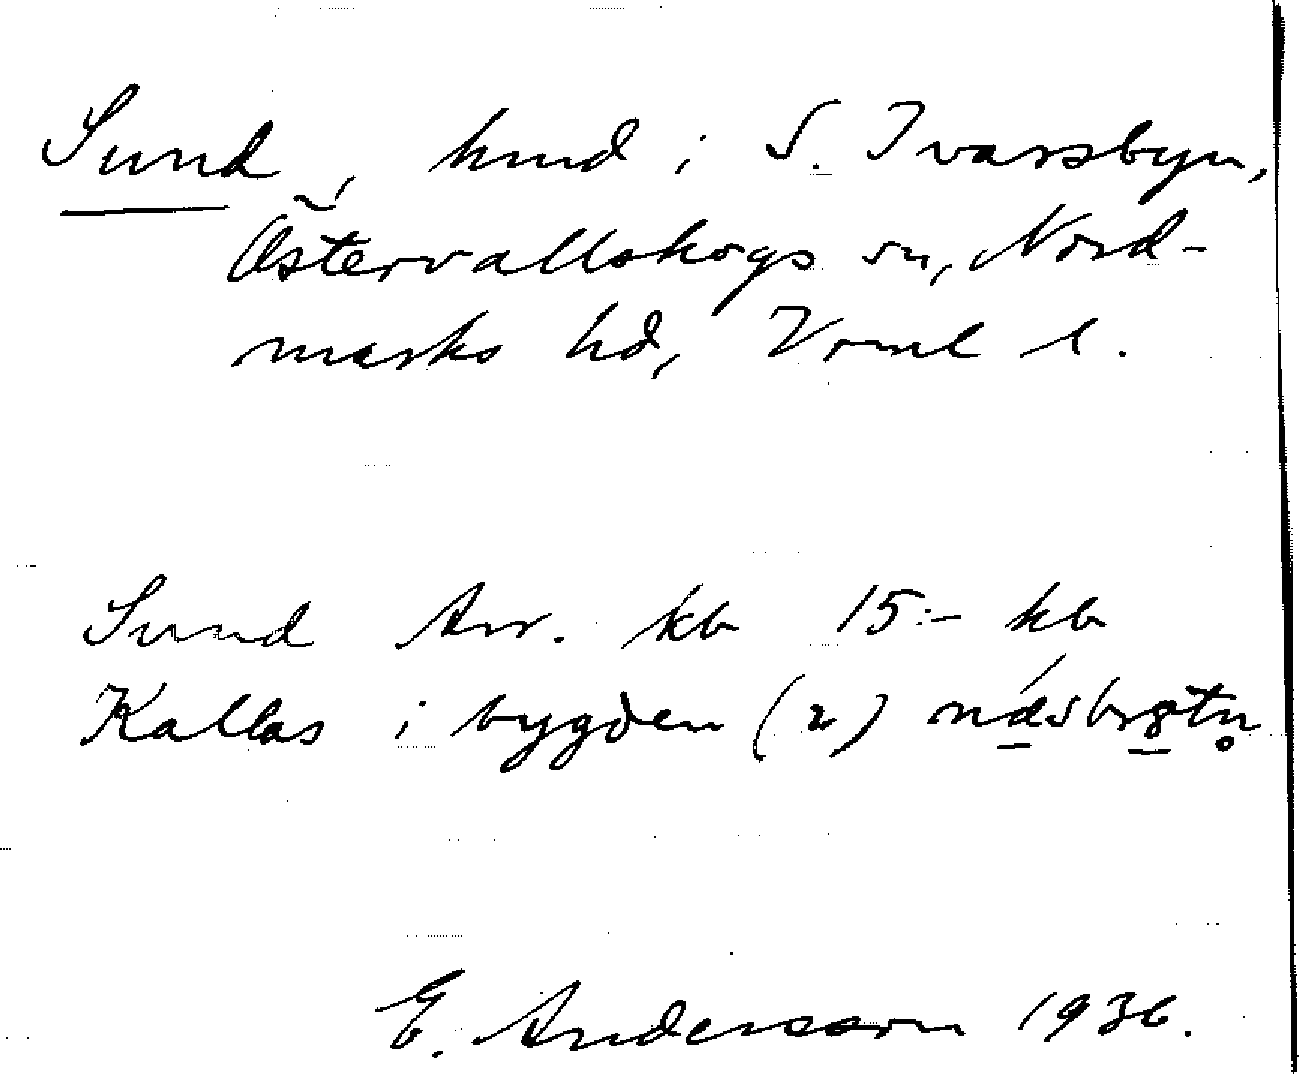 Sund, hmd i S. Ivarsbyn,
Östervallskogs sn, Nord-
marks hd, Vrml l.
Sund Arr. kb 15:- kb
Kallas i bygden (2) næsbrøtn̥
E. Andersson 1936.